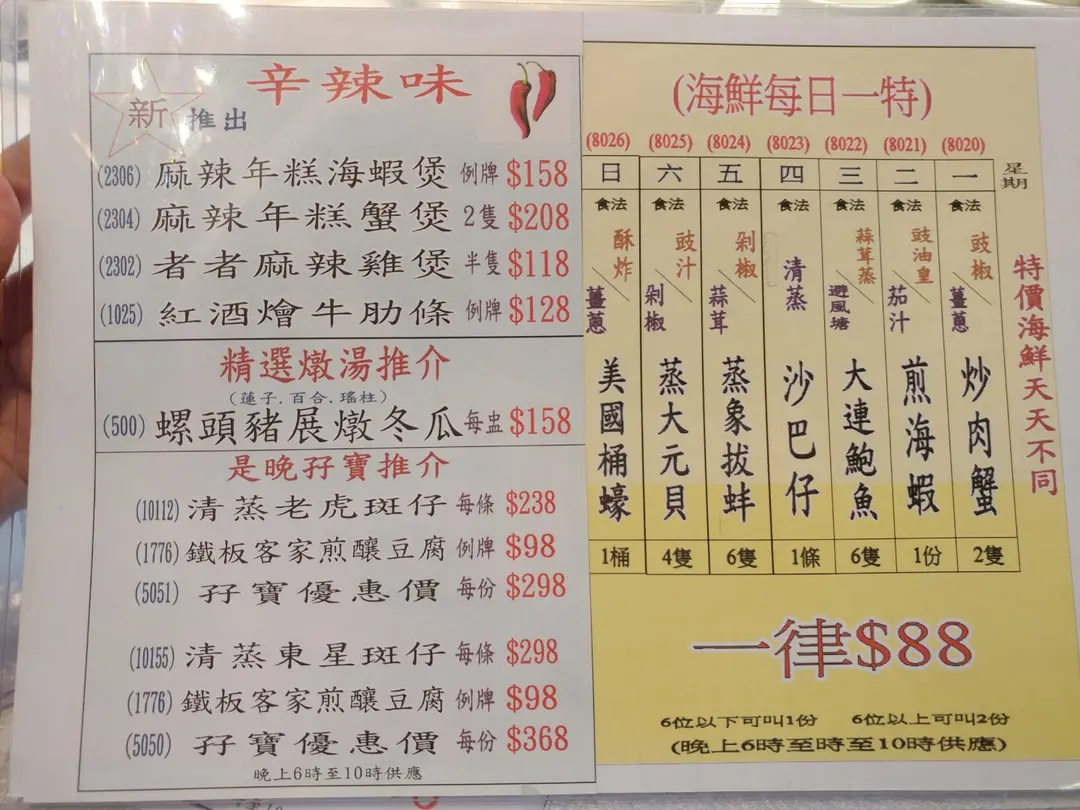 辛辣味
新 推出
(2306) 麻辣年糕海蝦煲 例牌 $158
(2304) 麻辣年糕蟹煲 2隻 $208
(2302) 者者麻辣雞煲 半隻 $118
(1025) 紅酒燴牛肋條 例牌 $128
精選燉湯推介
(蓮子.百合.瑤柱)
(500) 螺頭豬展燉冬瓜 每盅 $158
是晚孖寶推介
(10112) 清蒸老虎斑仔 每條 $238
(1776) 鐵板客家煎釀豆腐 例牌 $98
(5051) 孖寶優惠價 每份 $298
(10155) 清蒸東星斑仔 每條 $298
(1776) 鐵板客家煎釀豆腐 例牌 $98
(5050) 孖寶優惠價 每份 $368
晚上6時至10時供應
(海鮮每日一特)
特價海鮮天天不同
星期
(8020) 一 食法 豉椒/薑蔥 炒肉蟹 2隻
(8021) 二 食法 豉油皇/茄汁 煎海蝦 1份
(8022) 三 食法 蒜茸蒸/避風塘 大連鮑魚 6隻
(8023) 四 食法 清蒸 沙巴仔 1條
(8024) 五 食法 剁椒/蒜茸 蒸象拔蚌 6隻
(8025) 六 食法 豉汁/剁椒 蒸大元貝 4隻
(8026) 日 食法 酥炸/薑蔥 美國桶蠔 1桶
一律$88
6位以下可叫1份 6位以上可叫2份
(晚上6時至時至10時供應)